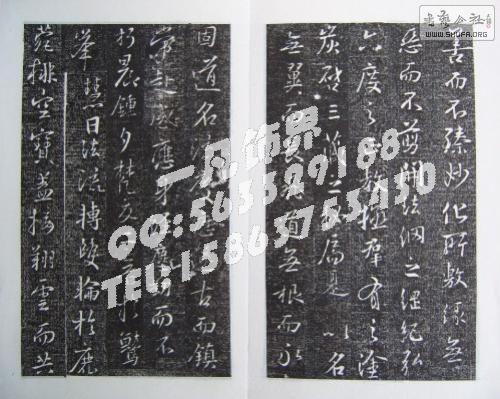 善而不臻妙化所敷緣無
惡而不剪開法網之綱紀弘
六度之正教拯群有之塗
炭啓三藏之秘扃是以名
無翼而長飛道無根而永
固道名流慶歷遂古而鎮
常赴感應身經塵劫而不
朽晨鍾夕梵交二音於鷲
峯慧日法流轉雙輪於鹿
菀排空寶蓋接翔雲而共
一凡饰界
QQ:563529188
TEL:15863755450
WWW.SHUFA.ORG